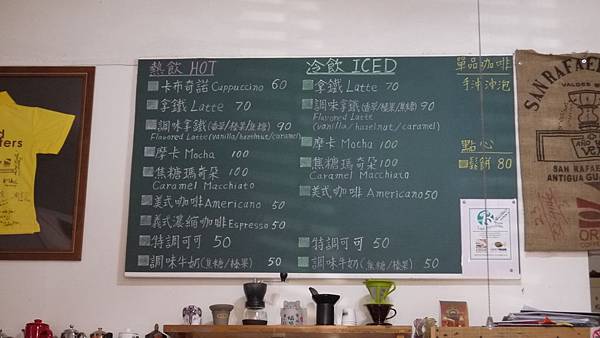 熱飲 HOT
卡布奇諾 Cappuccino 60
拿鐵 Latte 70
調味拿鐵(香草/榛果/焦糖) 90
Flavored Latte (vanilla/hazelnut/caramel)
摩卡 Mocha 100
焦糖瑪奇朵 100
Caramel Macchiato
美式咖啡 Americano 50
義式濃縮咖啡 Espresso 50
特調可可 50
調味牛奶(焦糖/榛果) 50
冷飲 ICED
拿鐵 Latte 70
調味拿鐵(香草/榛果/焦糖) 90
Flavored Latte
(vanilla/hazelnut/caramel)
摩卡 Mocha 100
焦糖瑪奇朵 100
Caramel Macchiato
美式咖啡 Americano 50
特調可可 50
調味牛奶(焦糖/榛果) 50
單品咖啡
手沖
點心
鬆餅 80
SAN RAFAEL
SAN RAFAEL
ANTIGUA GU